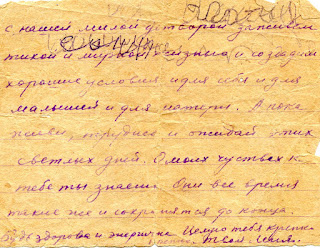 с нашей милой детворой заживем
тихой и мирной жизнью и создадим
хорошие условия и для себя и для
малышей и для матери. А пока
живи, трудись и ожидай этих
светлых дней. О моих чуствах к
тебе ты знаешь. Они все время
такие же и сохранятся до конца.
Будь здорова и энергична Целую тебя крепко
Твой